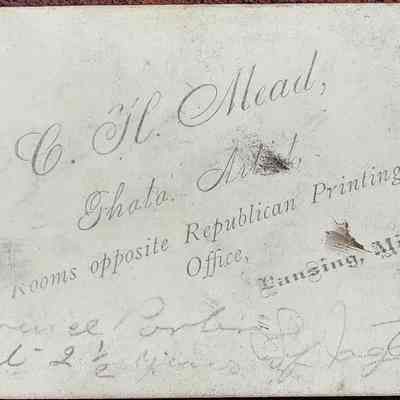 C. H. Mead,
Photo. Artist,
Rooms opposite Republican Printing
Office,
Lansing, Mi
2 1/2 years of age